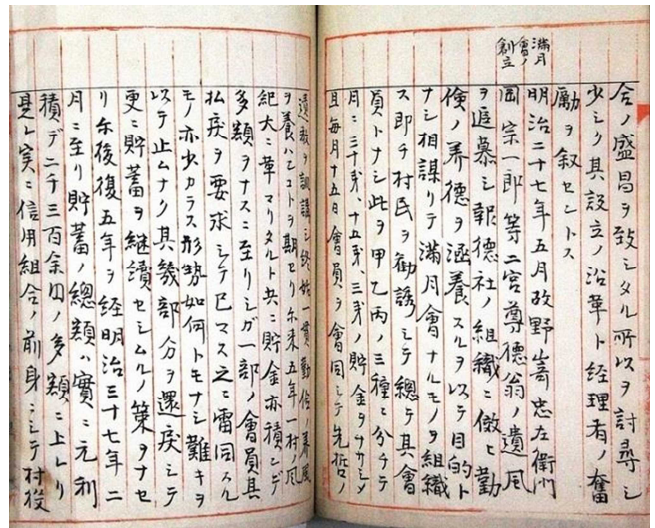 満月
會ノ
創立
合ノ盛昌ヲ致シタル所以ヲ討尋シ
少シク其設立ノ沿革ト経理者ノ奮
勵ヲ叙セントス
明治二十七年五月故野嵜忠左衛門
岡宗一郎等二宮尊徳翁ノ遺風
ヲ追慕シ報徳社ノ組織ニ倣ヒ勤
倹ノ美徳ヲ涵養スルヲ以テ目的ト
ナシ相謀リテ満月會ナルモノヲ組織
ス即チ村民ヲ勧誘シテ總テ其會
員トナシ此ヲ甲乙丙ノ三種ニ分チテ
月ニ三十銭、十五銭、三銭ノ貯金ヲナサシメ
且毎月十五日會員ヲ會同シテ先哲ノ
遺教ヲ訓講シ終始一貫勤倹ノ美風
ヲ養ハンコトヲ期セリ尓来五年一村ノ風
紀大ニ革マリタルト共ニ貯金亦積ンデ
多額ヲナスニ至リシガ一部ノ會員其
払戻ヲ要求シテ已マス之ニ雷同スル
モノ亦少カラス形勢如何トモナシ難キヲ
以テ止ムナク其幾部分ヲ還戻シテ
更ニ貯蓄ヲ継續セシムルノ策ヲナセ
リ尓後復五年ヲ経明治三十七年二
月ニ至リ貯蓄ノ總額ハ實ニ元利
積デ二千三百余円ノ多額ニ上レリ
是レ実ニ信用組合ノ前身ニシテ村役